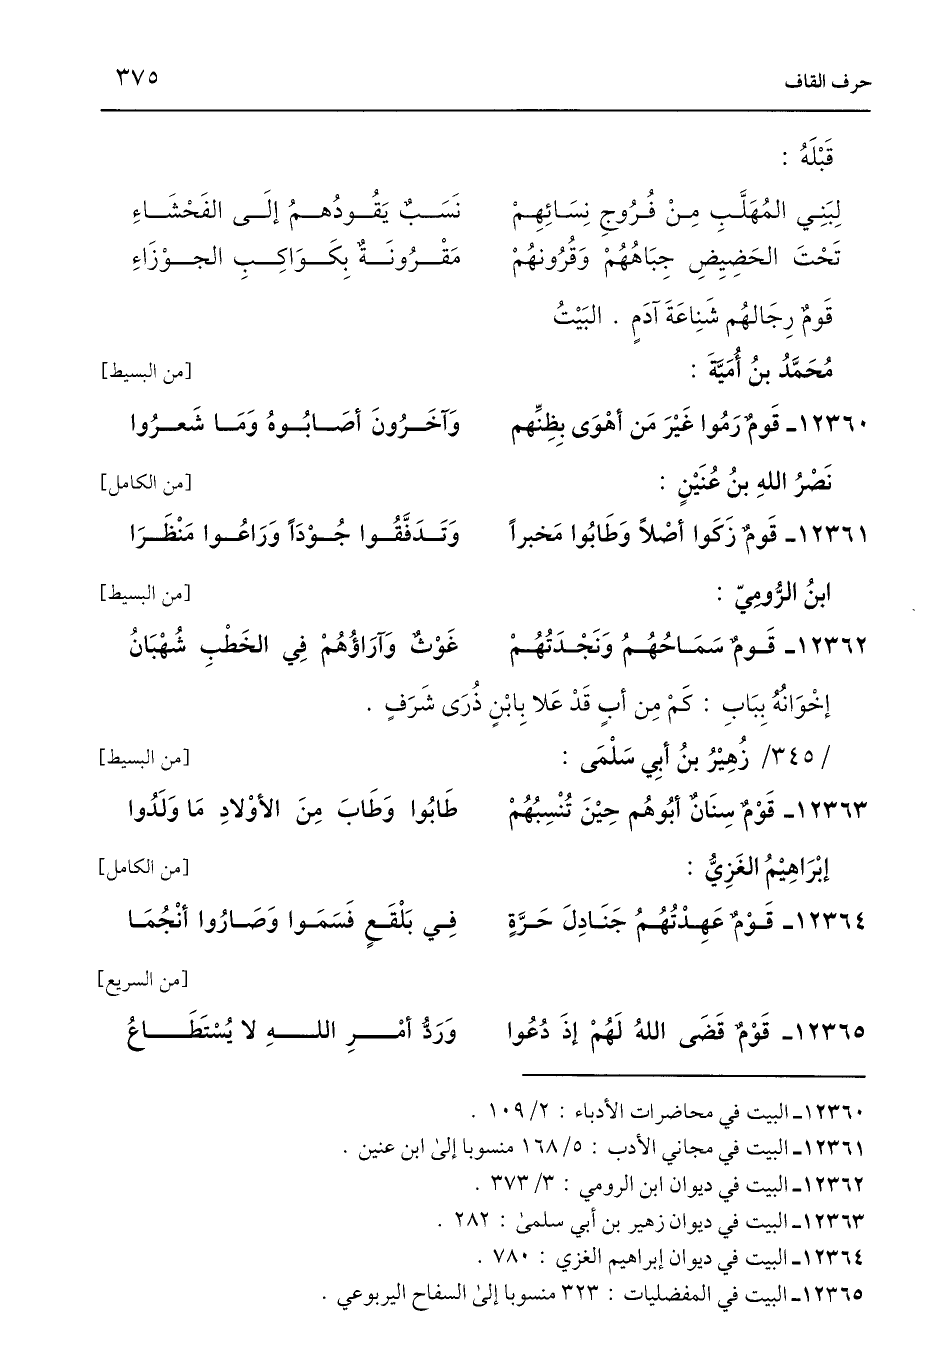 حرف القاف ٣٧٥
قَبْلَهُ :
لِبَنِي المُهَلَّبِ مِنْ فُرُوجِ نِسَائِهِمْ نَسَبٌ يَقُودُهُمُ إلَى الفَحْشَاءِ
تَحْتَ الحَضِيضِ جِبَاهُهُمْ وَقُرُونُهُمْ مَقْرُونَةٌ بِكَوَاكِبِ الجوْزَاءِ
قَومٌ رِجَالهُم شَنِاعَةَ آدَمٍ . البَيْتُ
مُحَمَّدُ بنُ أُمَيَّةَ : [من البسيط]
١٢٣٦٠ـ قَومٌ رَمُوا غَيْرَ مَن أهْوَى بِظِنِّهم وَآخَرُونَ أصَابُوهُ وَمَا شَعرُوا
نَصْرُ اللهِ بنُ عُنَيْنٍ : [من الكامل]
١٢٣٦١ـ قَومٌ زَكَوا أصْلاً وَطَابُوا مَخبراً وَتَدَفَّقُوا جُوْدَاً وَرَاعُوا مَنْظَرَا
ابنُ الرُّومِيّ : [من البسيط]
١٢٣٦٢ـ قَومٌ سَمَاحُهُمُ وَنَجْدَتُهُمْ غَوْثٌ وَآرَاؤُهُمْ فِي الخَطْبِ شُهْبَانُ
إخْوَانُهُ بِبَابِ : كَمْ مِن أبٍ قَدْ عَلا بِابْنٍ ذُرَى شَرَفٍ .
/ ٣٤٥/ زُهِيْرُ بنُ أبِي سَلْمَى : [من البسيط]
١٢٣٦٣ـ قَوْمٌ سِنَانٌ أبُوهُم حِيْنَ تُنْسِبُهُمْ طَابُوا وَطَابَ مِنَ الأوْلادِ مَا وَلَدُوا
إبْرَاهِيْمُ الغَزِيُّ : [من الكامل]
١٢٣٦٤ـ قَوْمٌ عَهِدْتُهُمُ جَنَادِلَ حَرَّةٍ فِي بَلْقَعٍ فَسَمَوا وَصَارُوا أنْجُمَا
[من السريع]
١٢٣٦٥ـ قَوْمٌ قَضَى اللهُ لَهُمْ إذَ دُعُوا وَرَدُّ أمْرِ اللهِ لا يُسْتَطَاعُ
١٢٣٦٠ـ البيت في محاضرات الأدباء : ٢/ ١٠٩ .
١٢٣٦١ـ البيت في مجاني الأدب : ٥/ ١٦٨ منسوبا إلىٰ ابن عنين .
١٢٣٦٢ـ البيت في ديوان ابن الرومي : ٣/ ٣٧٣ .
١٢٣٦٣ـ البيت في ديوان زهير بن أبي سلمىٰ : ٢٨٢ .
١٢٣٦٤ـ البيت في ديوان إبراهيم الغزي : ٧٨٠ .
١٢٣٦٥ـ البيت في المفضليات : ٣٢٣ منسوبا إلىٰ السفاح اليربوعي .